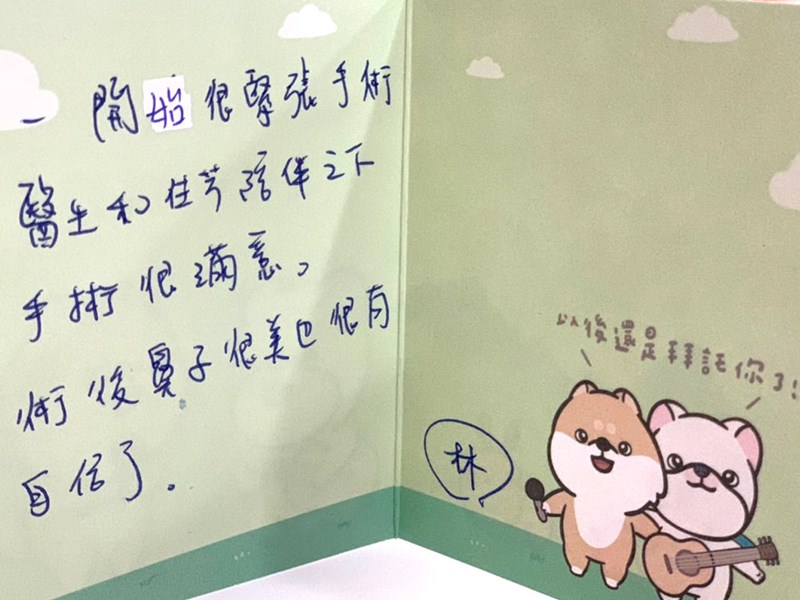 一開始很緊張手術
醫生和佳芳陪伴之下
手術很滿意。
術後鼻子很美也很有
自信了。
林
以後還是拜託你了!